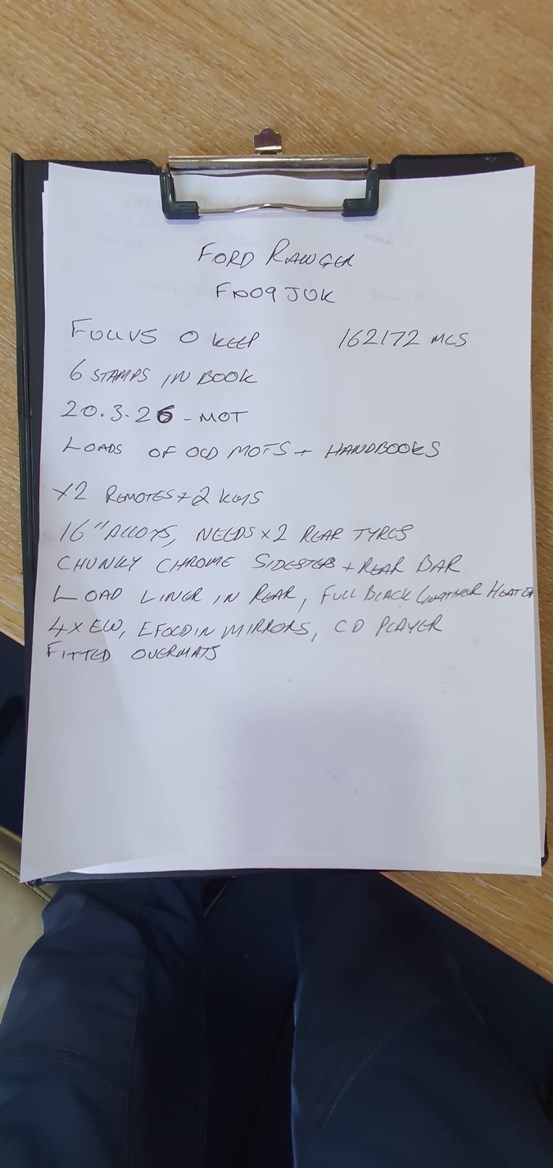 FORD RANGER
FN09 JUK
FULL V5 0 KEEP 162172 MLS
6 STAMPS IN BOOK
20.3.26 - MOT
LOADS OF OLD MOTS + HANDBOOKS
X2 REMOTES + 2 KEYS
16" ALLOYS, NEEDS X2 REAR TYRES
CHUNKY CHROME SIDESTEPS + REAR BAR
LOAD LINER IN REAR, FULL BLACK LEATHER HEATED
4X EW, EFOLDIN MIRRORS, CD PLAYER
FITTED OVERMATS